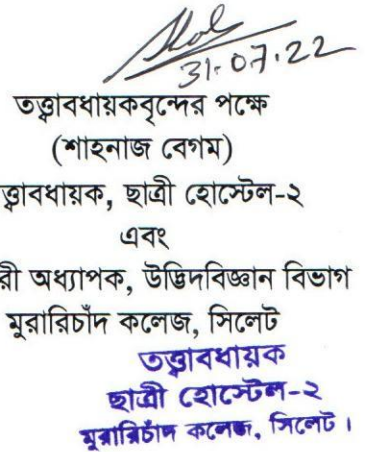 31.07.22
তত্ত্বাবধায়কবৃন্দের পক্ষে
(শাহনাজ বেগম)
ত্ত্বাবধায়ক, ছাত্রী হোস্টেল-২
এবং
রী অধ্যাপক, উদ্ভিদবিজ্ঞান বিভাগ
মুরারিচাঁদ কলেজ, সিলেট
তত্ত্বাবধায়ক
ছাত্রী হোস্টেল-২
মুরারিচাঁদ কলেজ, সিলেট।